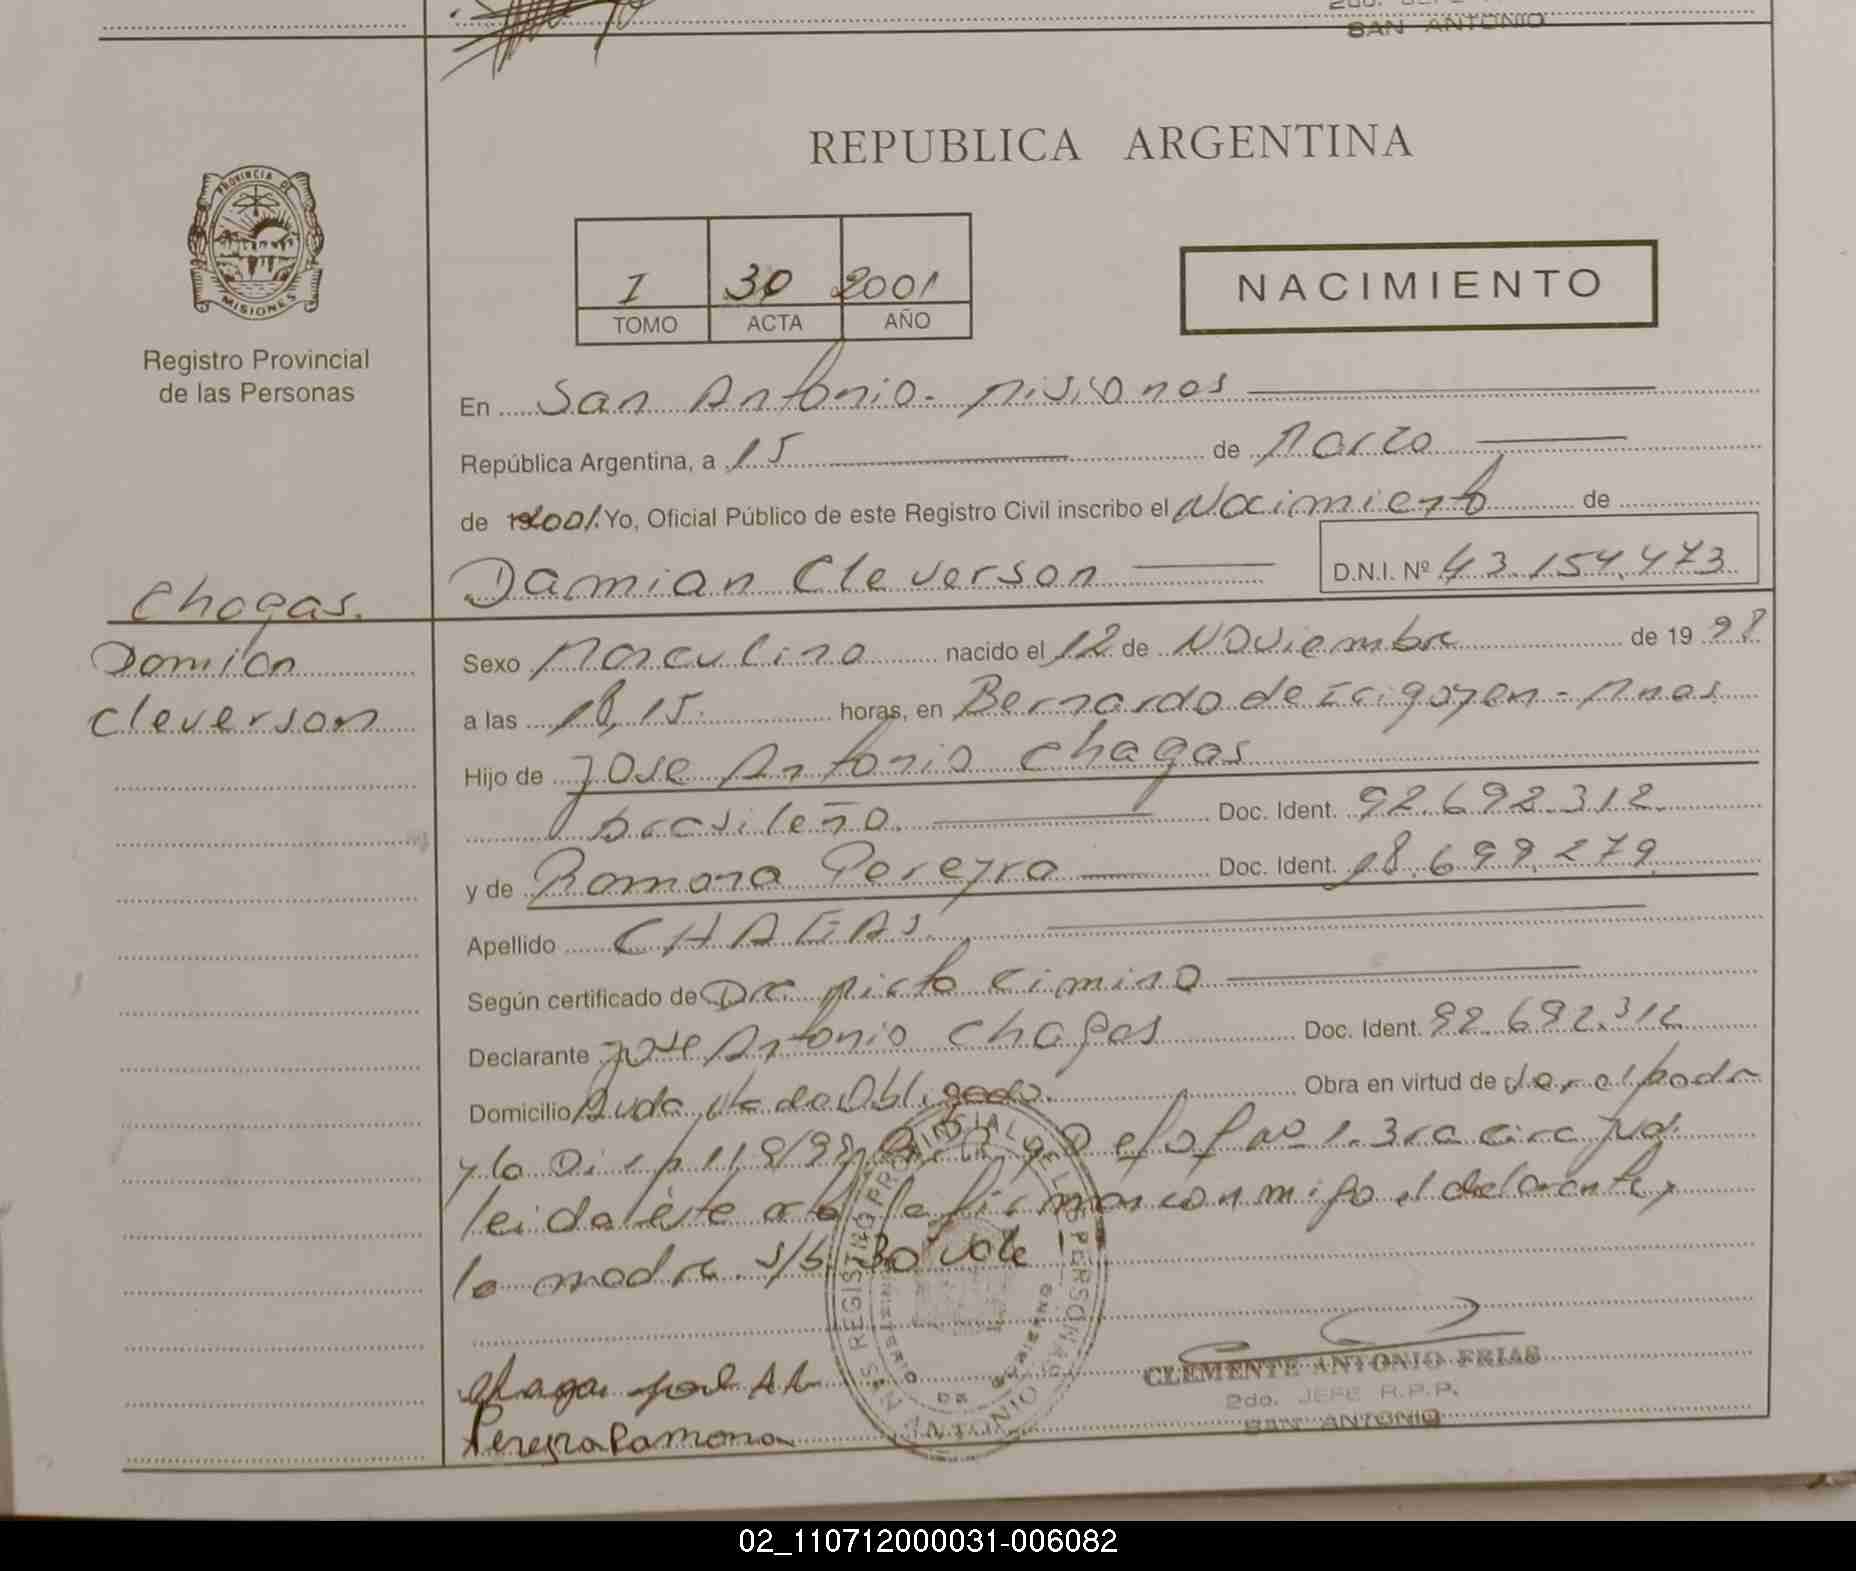 2do. JEFE
SAN ANTONIO
REPUBLICA ARGENTINA
PROVINCIA DE
MISIONES
Registro Provincial
de las Personas
I 30 2001
TOMO ACTA AÑO
NACIMIENTO
En San Antonio - Misiones
República Argentina, a 15 de Marzo
de 2001. Yo, Oficial Público de este Registro Civil inscribo el Nacimiento de
Damian Cleverson D.N.I. Nº 43.154.473
Chagas.
Damian
Cleverson
Sexo Masculino nacido el 12 de Noviembre de 19 98
a las 18,15 horas, en Bernardo de Irigoyen - Mnes
Hijo de Jose Antonio Chagas
brasileño. Doc. Ident. 92.692.312
y de Ramona Pereyra Doc. Ident. 18.699.279
Apellido CHAGAS.
Según certificado de Dra Cimino
Declarante Jose Antonio Chagas Doc. Ident. 92.692.312
Domicilio Obligado. Obra en virtud de ser el padre
y la Disp 119/99 Def Of nº 1. 3ra circ Jud.
leida éste acta la firman conmigo el declarante y
la madre. S/b. 30 vale
Chagas José A
Pereyra Ramona
REGISTRO PROVINCIAL DE LAS PERSONAS
SAN ANTONIO
CLEMENTE ANTONIO FRIAS
2do. JEFE R.P.P.
SAN ANTONIO
02_110712000031-006082